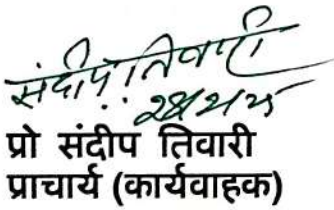 संदीप तिवारी
प्रो संदीप तिवारी
प्राचार्य (कार्यवाहक)